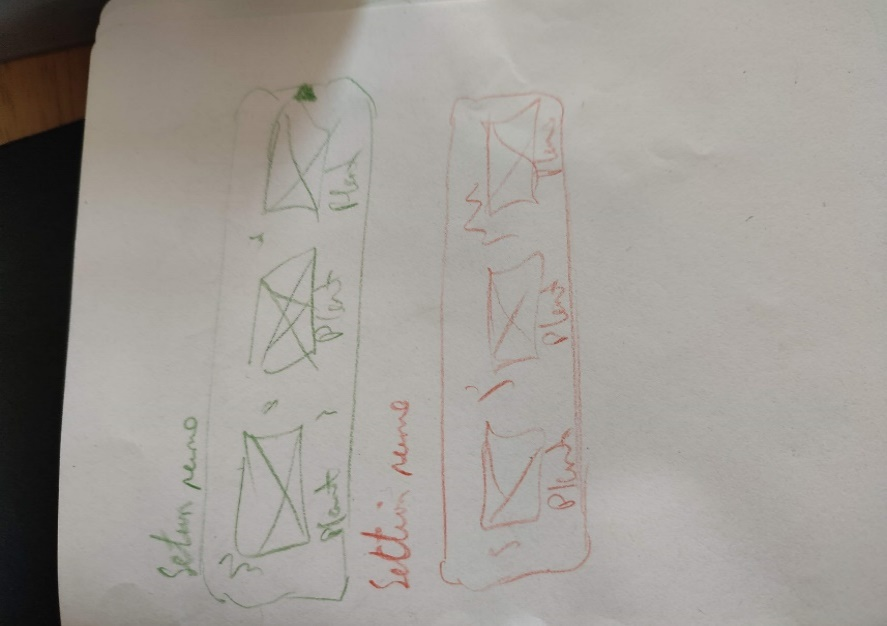 Setion name
Plant Plant Plant
Settin name
Plant Plant Plant